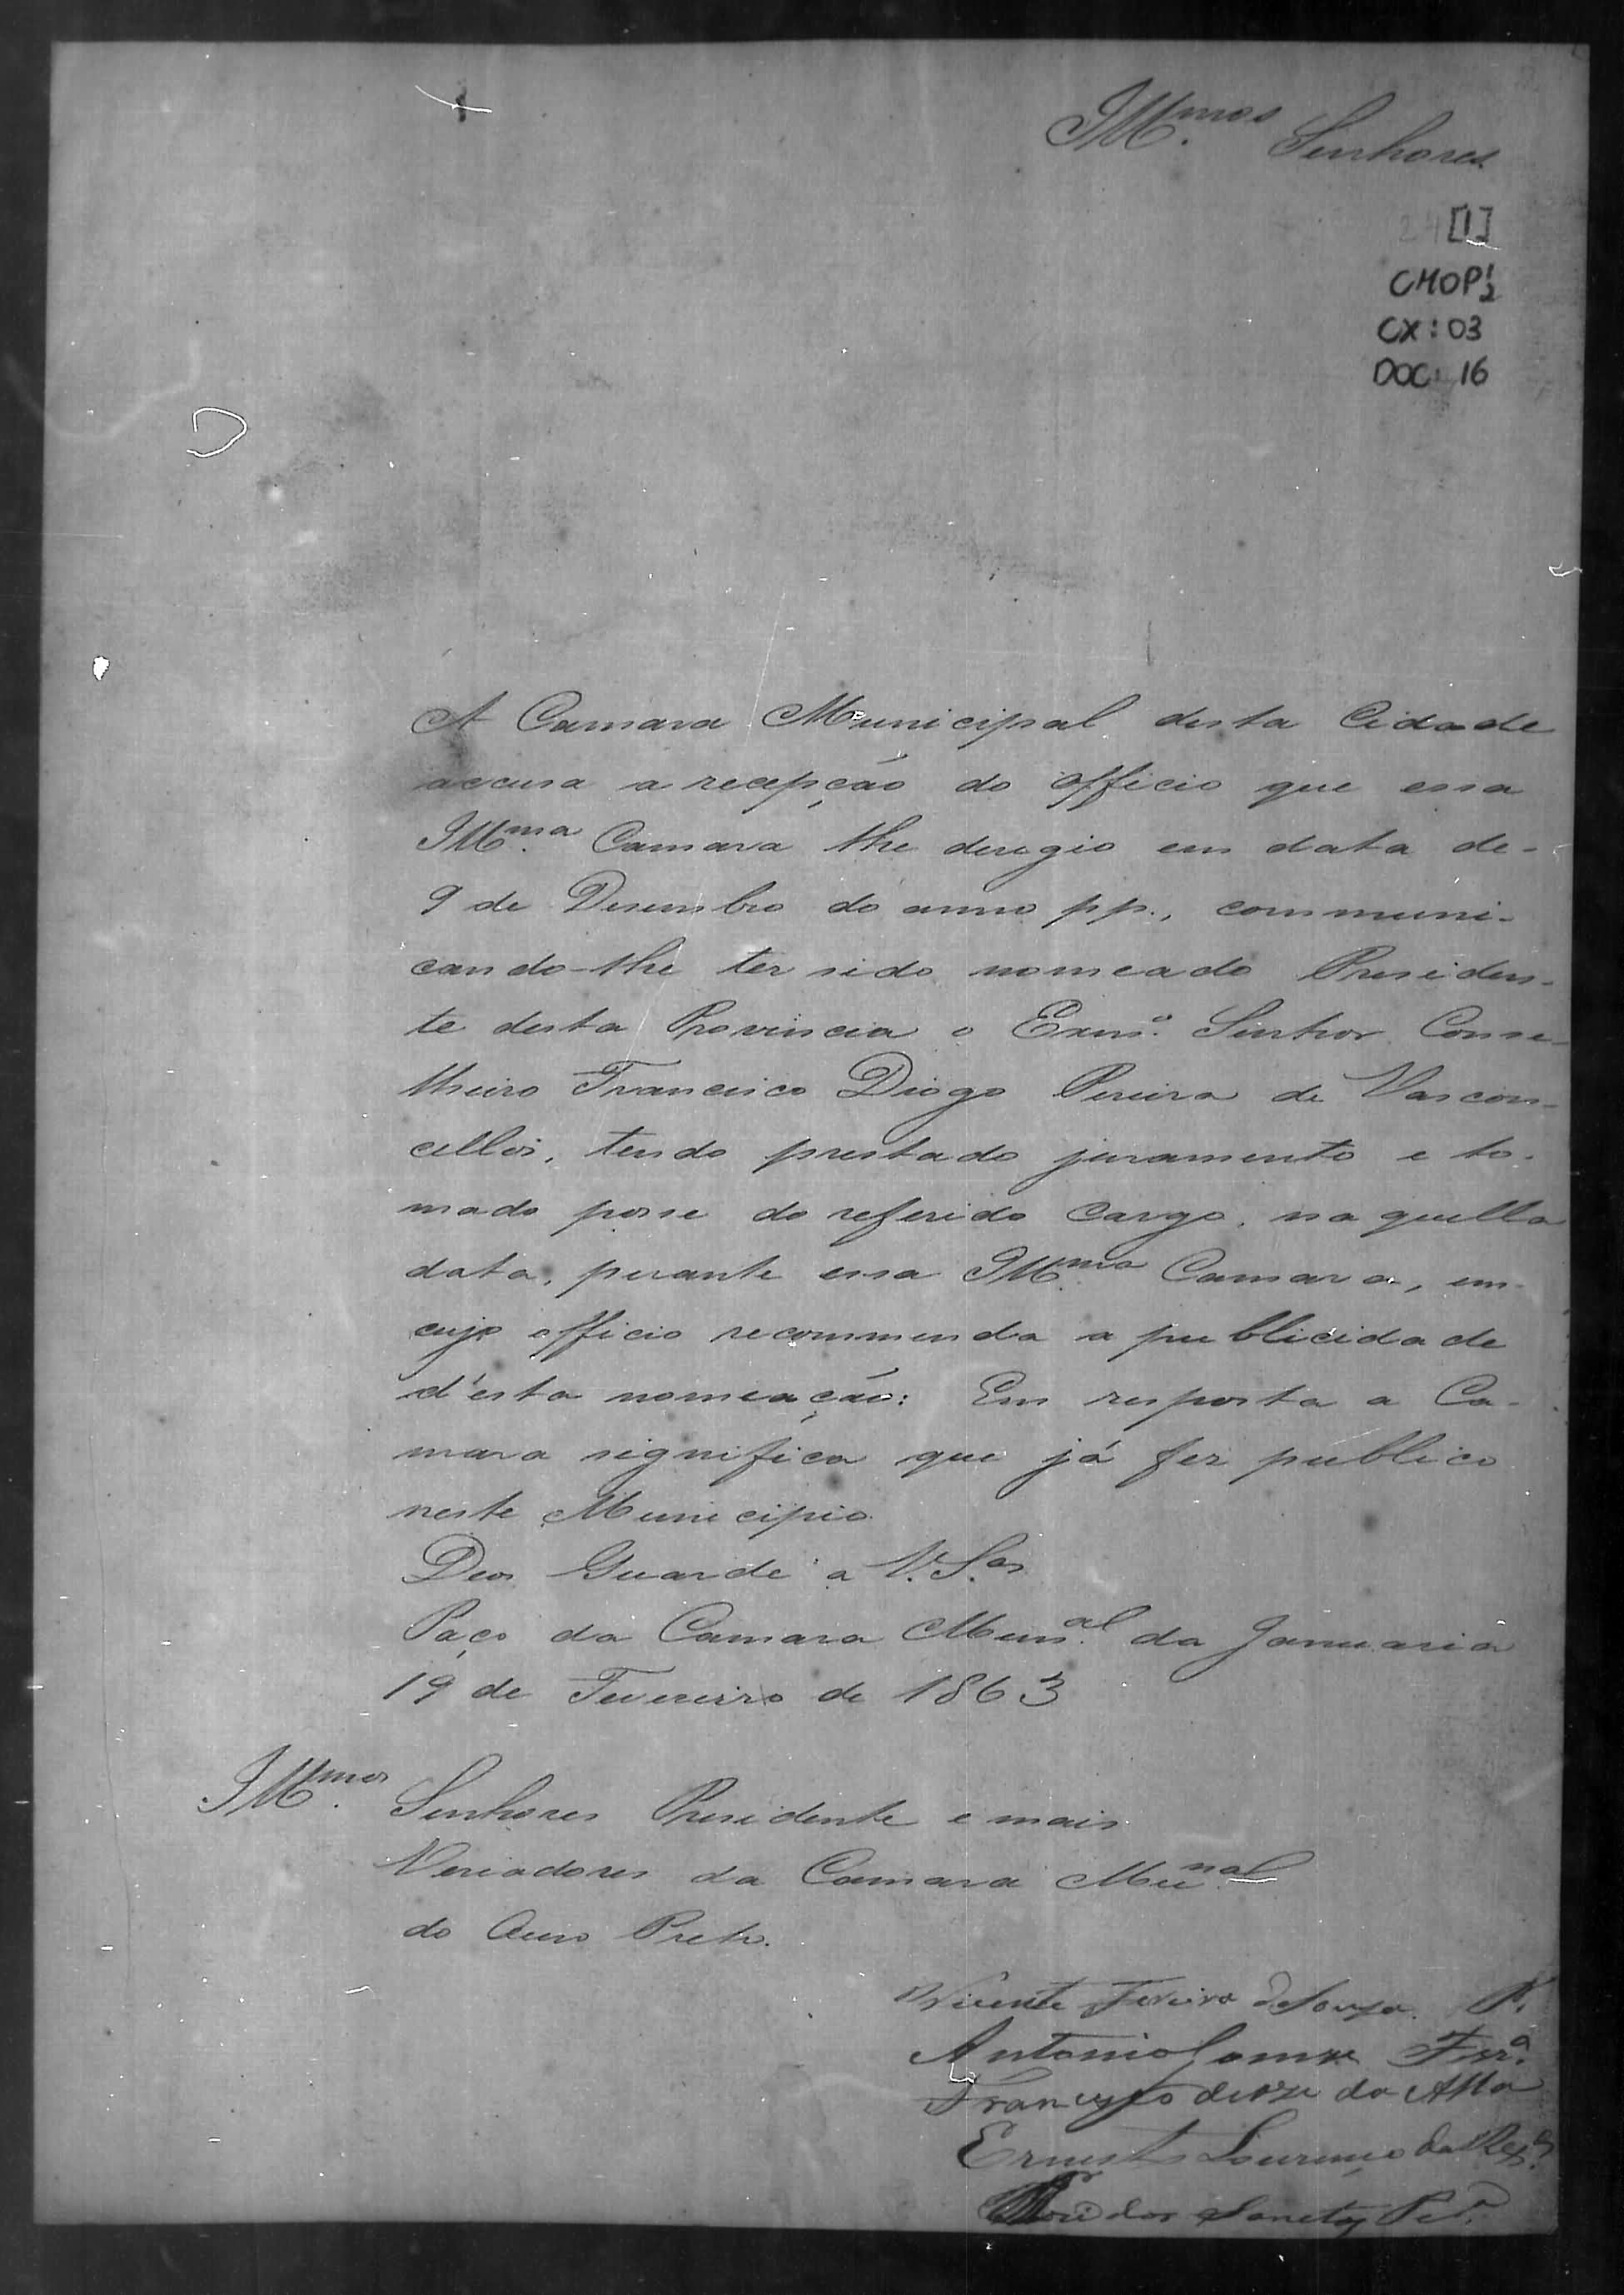 Illmos. Senhores
24 [1]
CMOP 1/2
CX: 03
DOC: 16
A Camara Municipal desta Cidade
accusa a recepção do officio que essa
Illma. Camara lhe deregio em data de-
9 de Desembro do anno pp., communi-
cando-lhe ter sido nomeado Presiden-
te desta Provincia o Exmo. Senhor Conse-
lheiro Francisco Diogo Pereira de Vascon-
cellos, tendo prestado juramento e to-
mado posse do referido cargo, naquella
data, perante essa Illma. Camara, em
cujo officio recommenda a publicidade
d'esta nomeação: Em resposta a Ca-
mara significa que já fez publico
neste Municipio.
Deos Guarde a V. Sas.
Paço da Camara Munal. da Januaria
19 de Fevereiro de 1863
Illmos. Senhores Presidente e mais
Veriadores da Camara Munal.
do Ouro Preto.
Vicente Ferreira de Souza P.
Antonio Gomes Ferra.
Francisco da
Ernesto Lourenço da
José dos Sanctos Pra.